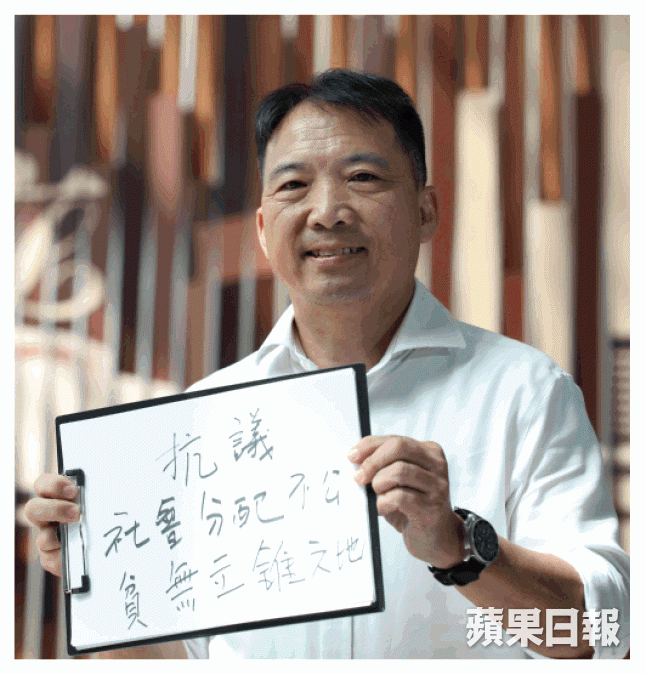 抗議
社會分配不公
貧無立錐之地
蘋果日報